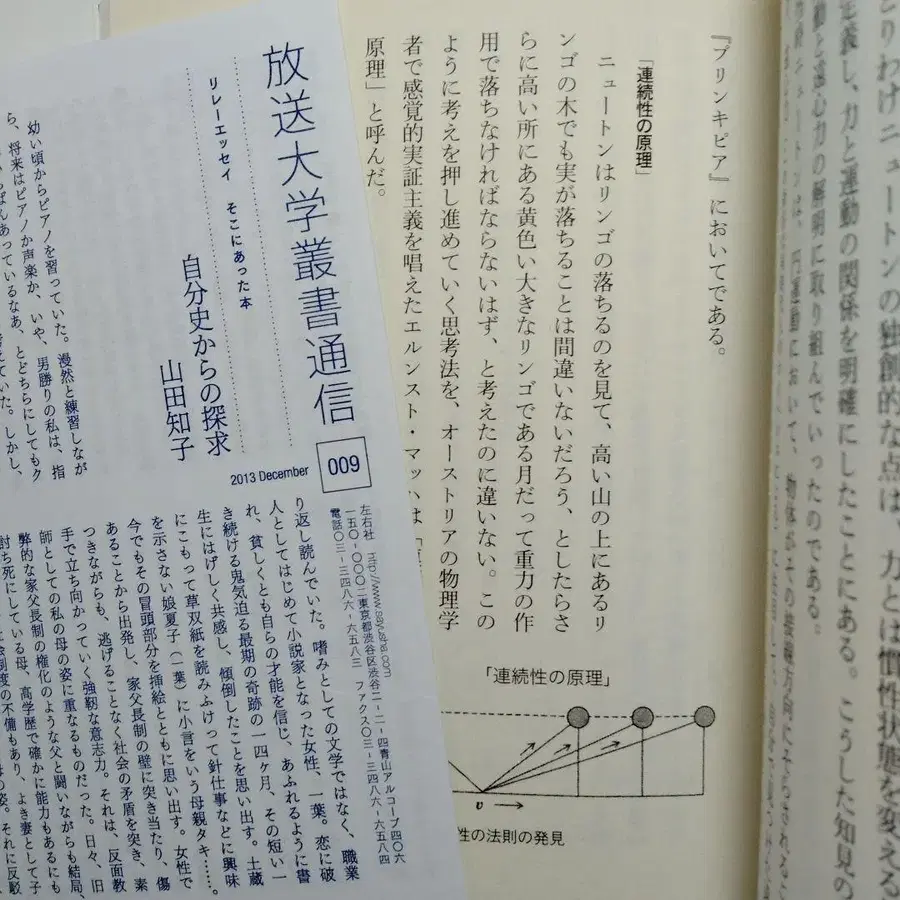 りわけニュートンの独創的な点は、力とは慣性状態を変える
定義し、力と運動の関係を明確にしたことにある。こうした知見の
動と遠心力の解明に取り組んでいったのである。
ニュートンは、円運動において、物体がその接線方向に
『プリンキピア』においてである。
「連続性の原理」
ニュートンはリンゴの落ちるのを見て、高い山の上にあるリ
ンゴの木でも実が落ちることは間違いないだろう、としたらさ
らに高い所にある黄色い大きなリンゴである月だって重力の作
用で落ちなければならないはず、と考えたのに違いない。この
ように考えを押し進めていく思考法を、オーストリアの物理学
者で感覚的実証主義を唱えたエルンスト・マッハは「
原理」と呼んだ。
「連続性の原理」
υ
性の法則の発見
放送大学叢書通信
009
2013 December
リレーエッセイ そこにあった本
自分史からの探求
山田知子
幼い頃からピアノを習っていた。漫然と練習しなが
ら、将来はピアノか声楽か、いや、男勝りの私は、指
あっているなあ、とどちらにしてもク
えていた。しかし、
左右社
一五〇-〇〇〇二東京都渋谷区渋谷二-二-四青山アルコーブ四〇六
電話〇三-三四八六-六五八三 ファクス〇三-三四八六-六五八四
り返し読んでいた。嗜みとしての文学ではなく、職業
人としてはじめて小説家となった女性、一葉。恋に破
れ、貧しくとも自らの才能を信じ、あふれるように書
き続ける鬼気迫る最期の奇跡の一四ヶ月、その短い一
生にはげしく共感し、傾倒したことを思い出す。土蔵
にこもって草双紙を読みふけって針仕事などに興味
を示さない娘夏子（一葉）に小言をいう母親タキ……。
今でもその冒頭部分を挿絵とともに思い出す。女性で
あることから出発し、家父長制の壁に突き当たり、傷
つきながらも、逃げることなく社会の矛盾を突き、素
手で立ち向かっていく強靭な意志力。それは、反面教
師としての私の母の姿に重なるものだった。日々、旧
弊的な家父長制の権化のような父と闘いながらも結局、
討ち死にしている母、高学歴で確かに能力もあるにも
制度の不備もあり、よき妻として子
姿。それに反駁